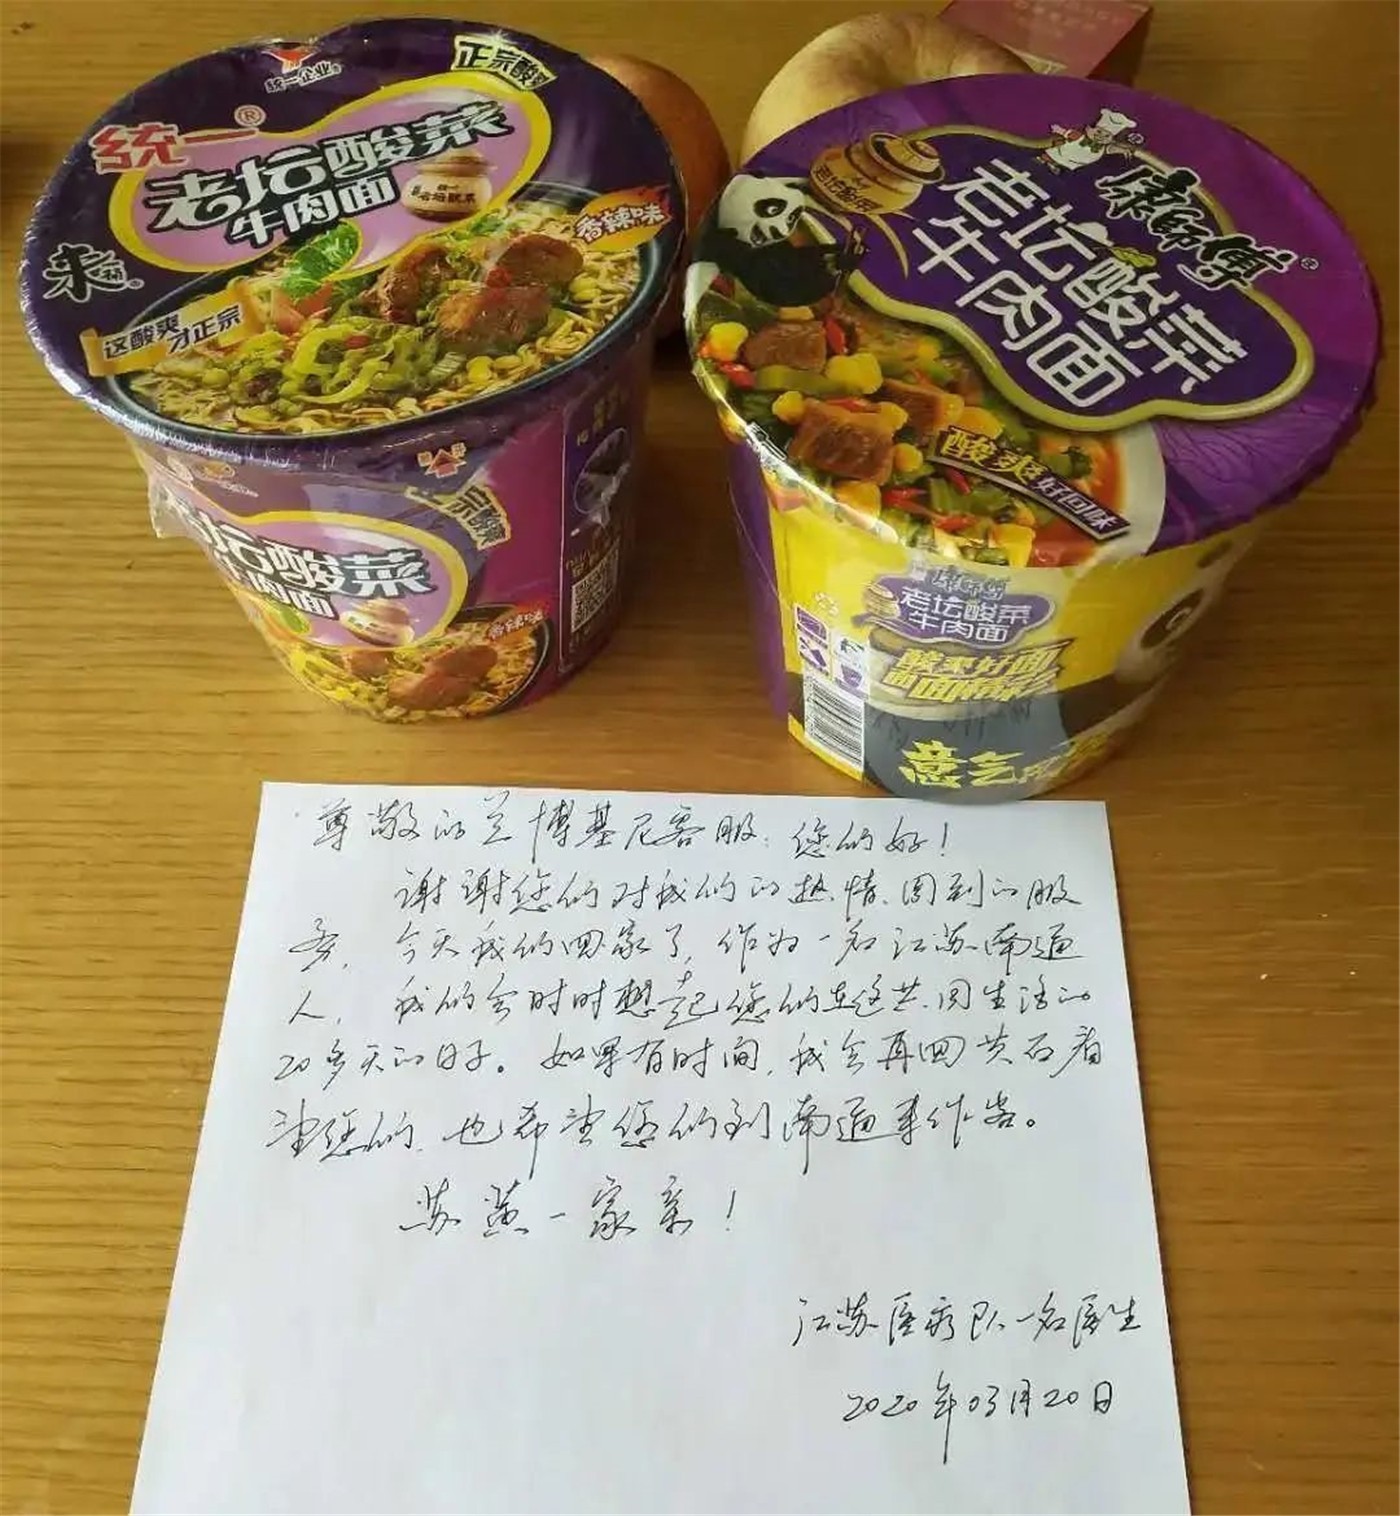 统一企业®
正宗酸爽
统一®
老坛酸菜
牛肉面
老坛酸菜
香辣味
来一桶®
这酸爽才正宗
坛酸菜
牛肉面
香辣味
康師傅®
老坛酸菜
牛肉面
酸爽好回味
康師傅
老坛酸菜
牛肉面
酸爽好面
意气
尊敬的兰博基尼客服：您们好！
谢谢您们对我们的热情、周到的服
务，今天我们回家了，作为一名江苏南通
人，我们会时时想起您们在这共同生活的
20多天的日子。如果有时间，我会再回黄石看
望您们，也希望您们到南通来作客。
苏黄一家亲！
江苏医疗队一名医生
2020年03月20日